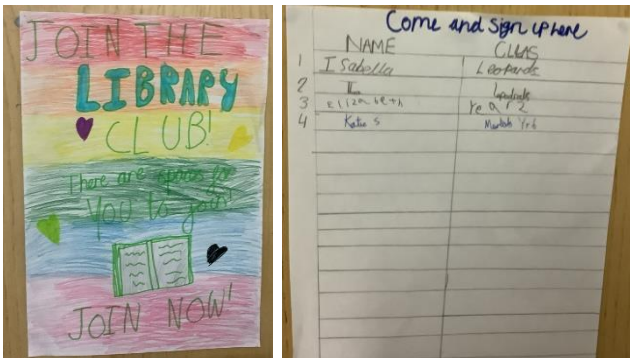 JOIN THE
LIBRARY
CLUB!
There are spaces for
YOU to join!
JOIN NOW!
Come and sign up here
NAME CLLAS
1 ISabella Leopards
2 I
3 Elizabeth Year 2
4 Katie S Yr6